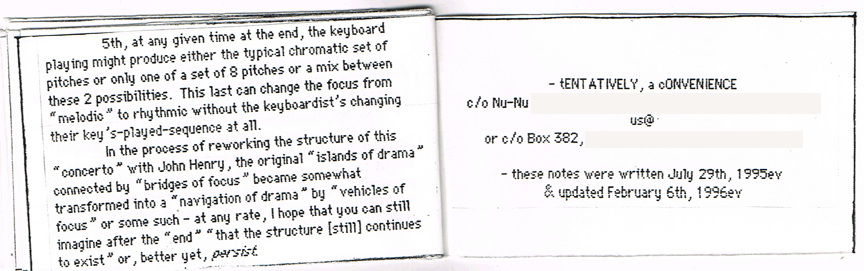 5th, at any given time at the end, the keyboard
playing might produce either the typical chromatic set of
pitches or only one of a set of 8 pitches or a mix between
these 2 possibilities. This last can change the focus from
"melodic" to rhythmic without the keyboardist's changing
their key's-played-sequence at all.
In the process of reworking the structure of this
"concerto" with John Henry, the original "islands of drama"
connected by "bridges of focus" became somewhat
transformed into a "navigation of drama" by "vehicles of
focus" or some such - at any rate, I hope that you can still
imagine after the "end" "that the structure [still] continues
to exist" or, better yet, persist.
- tENTATIVELY, a cONVENIENCE
c/o Nu-Nu
us@
or c/o Box 382,
- these notes were written July 29th, 1995ev
& updated February 6th, 1996ev